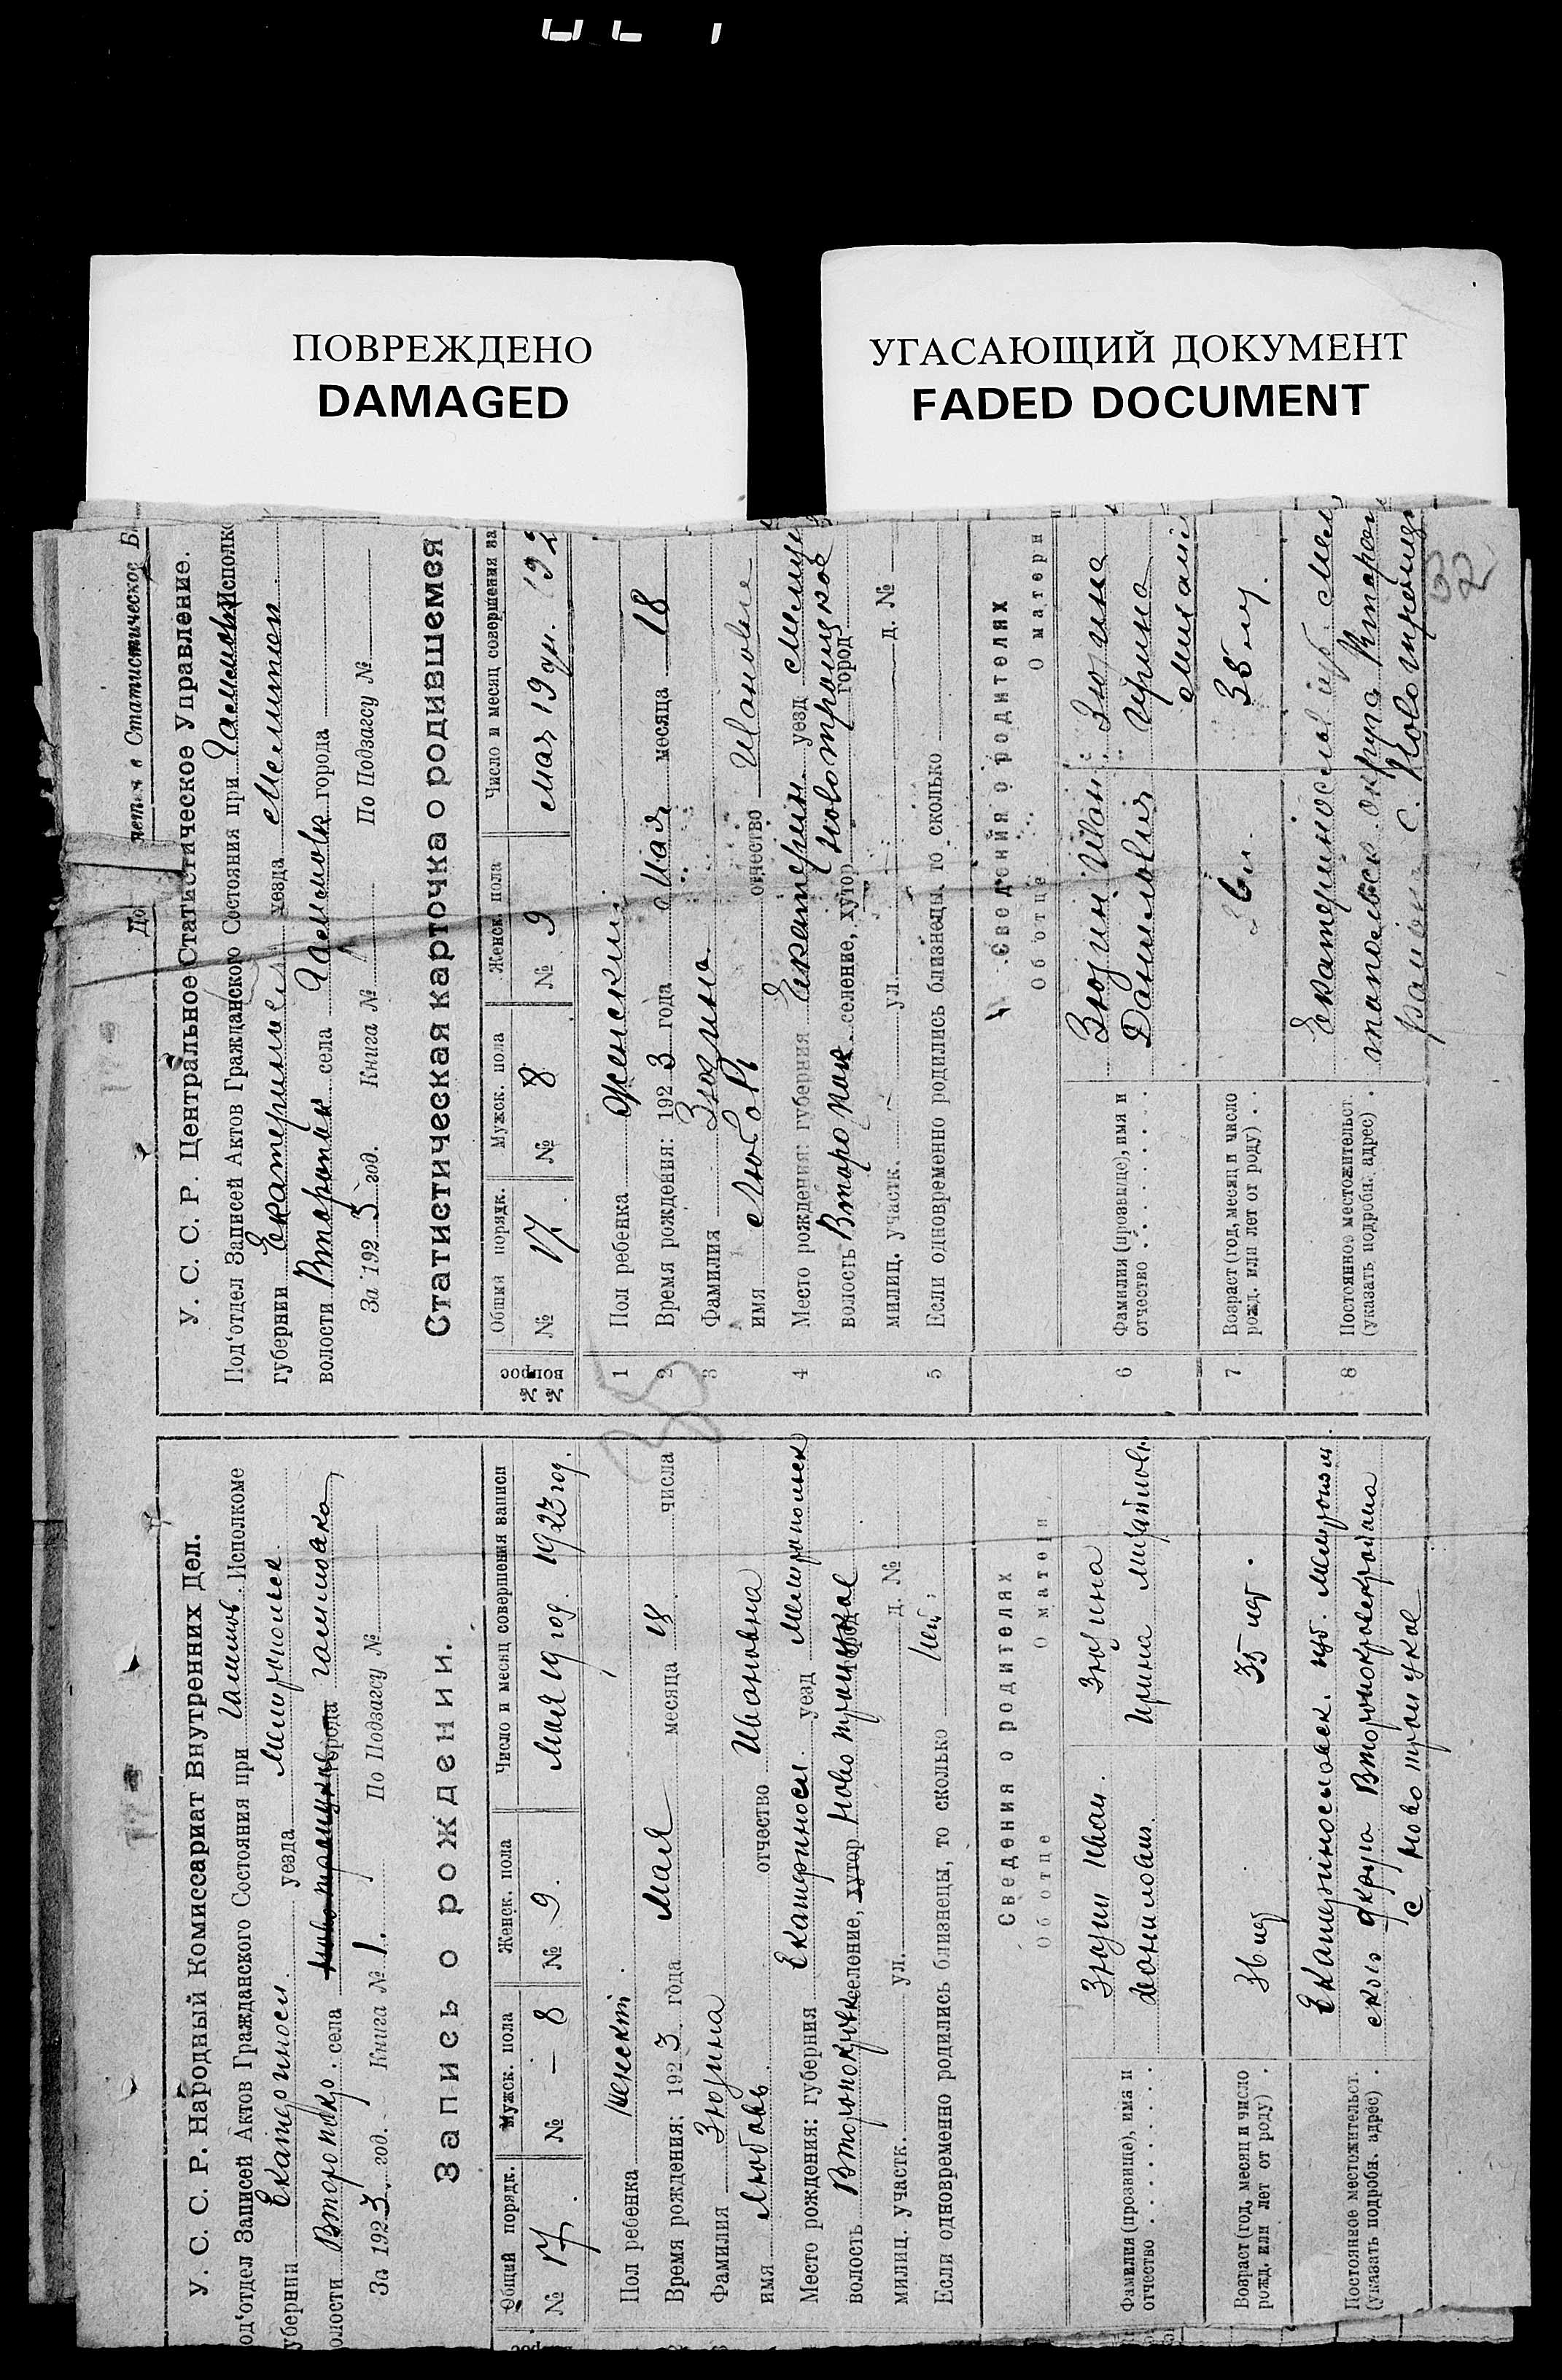 ПОВРЕЖДЕНО
DAMAGED
УГАСАЮЩИЙ ДОКУМЕНТ
FADED DOCUMENT
У. С. С. Р. Народный Комиссариат Внутренних Дел.
од'отдел Записей Актов Гражданского Состояния при Исполкоме
убернии Екатериносл. уезда
олости села города
За 1923 год. Книга № 1. По Подзагсу №
Запись о рождении.
Общий порядк. Мужск. пола Женск. пола Число и месяц совершения записи
№ 17. № — 8 № 9. Мая 19 год. 1923 год.
Пол ребенка
Время рождения: 1923 года Мая месяца 18 числа
Фамилия Зюзина
имя Любовь отчество Ивановна
Место рождения: губерния Екатериносл. уезд
волость селение, хутор Ново троицкое город
милиц. участк. ул. д. №
Если одновременно родились близнецы, то сколько
Сведения о родителях
Об отце О матери
Фамилия (прозвище), имя и отчество Зюзин Иван Данилович. Зюзина Ирина
Возраст (год, месяц и число рожд. или лет от роду) 36 лет 35 лет.
Постоянное местожительст. (указать подробн. адрес) Екатеринославск. губ.
ского округа
с Ново троицкое
Статистическое
У. С. С. Р. Центральное Статистическое Управление.
Под'отдел Записей Актов Гражданского Состояния при Исполк
губернии Екатеринос уезда Мелитоп
волости села города
За 1923 год. Книга № По Подзагсу №
Статистическая карточка о родившемся
№№ вопрос
Общий порядк. Мужск. пола Женск. пола Число и месяц совершения за
№ 17. № 8 № 9 мая 19 дн. 192
1 Пол ребенка Женский
2 Время рождения: 1923 года Мая месяца 18
3 Фамилия Зюзина
имя Любовь отчество
4 Место рождения: губерния Екатерин. уезд
волость селение, хутор Новотроицкое город
милиц. участк. ул. д. №
5 Если одновременно родились близнецы, то сколько
Сведения о родителях
Об отце О матери
6 Фамилия (прозвище), имя и отчество Зюзин Иван Данилович Зюзина Ирина
7 Возраст (год, месяц и число рожд. или лет от роду) 35 л.
8 Постоянное местожительст. (указать подробн. адрес) Екатеринослав губ. Мел
топольск. округа
с. Новотроицк